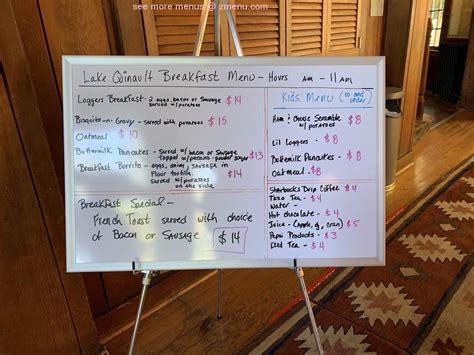 see more menus @ zmenu.com
Lake Quinault Breakfast Menu - Hours AM - 11AM
Loggers Breakfast - 2 eggs, bacon or sausage $14
served w/potatoes
Bisquits-n-Gravy - served with potatoes $15
Oatmeal $10
Buttermilk Pancakes - served w/ bacon or sausage
topped w/pecans + powder sugar $13
Breakfast Burrito - eggs, onions, sausage in
Flour tortilla. $14
served w/ potatoes
on the side
Breakfast Special -
French Toast served with choice
of Bacon or Sausage $14
Kids Menu (10 and under)
Ham & Cheese Scramble $8
w/potatoes
Lil Loggers - $8
Buttermilk Pancakes - $8
oatmeal - $8
Starbucks Drip Coffee $4
Tazo Tea - $4
Water -
Hot chocolate - $4
Juice - (Apple, oj, cran) $5
Pepsi Products - $3
Iced Tea - $4